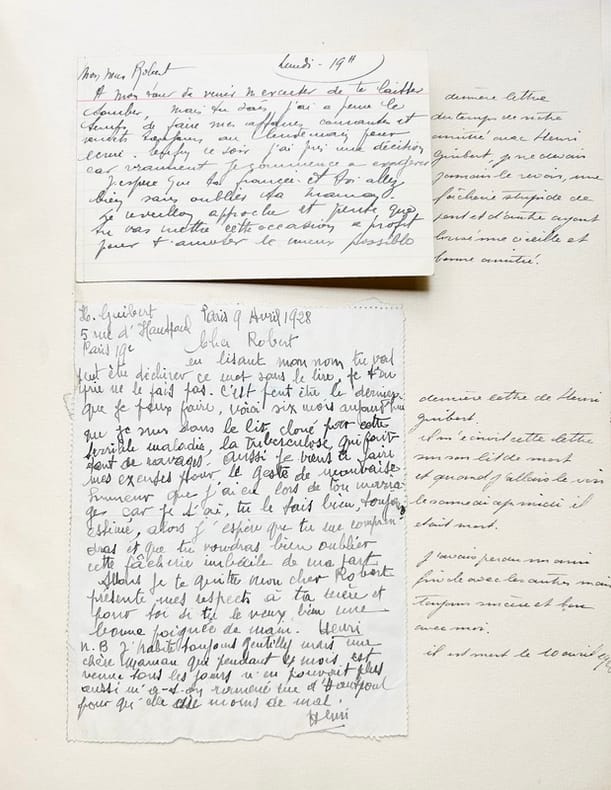 Lundi - 19H
Mon vieux Robert
A mon tour de venir m'excuser de te laisser
tomber, mais tu sais j'ai à peine le
temps de faire mes affaires courantes et
toujours au lendemain pour
ce soir j'ai pris une décision
car vraiment je commence à exagérer
J'espère que ta fiancée et toi allez
bien sans oublier ta maman.
Le reveillon approche et pense que
tu vas mettre cette occasion à profit
pour t'amuser le mieux possible
dernière lettre
du temps de notre
amitié avec Henri
Guibert, je ne devais
jamais le revoir, une
fâcherie stupide de
part et d'autre ayant
une vieille et
bonne amitié.
H. Guibert
5 rue d'Hautpoul
Paris 19e
Paris 9 Avril 1928
Cher Robert
en lisant mon nom tu vas
peut être déchirer ce mot sans le lire, je t'en
prie ne le fais pas. C'est peut être le dernier
que je peux faire, voici six mois aujourd'hui
que je suis dans le lit, cloué par cette
terrible maladie, la tuberculose qui fait
tant de ravages. Aussi je viens te faire
mes excuses pour le geste de mauvaise
humeur que j'ai eu lors de ton maria
ge, car je t'ai, tu le sais bien, toujours
estimé, alors j'espère que tu me compren
dras et que tu voudras bien oublier
cette fâcherie imbécile de ma part
je te quitte mon cher Robert
présente mes respects à ta mère et
pour toi si tu le veux bien une
bonne poignée de main. Henri
N.B J'habite toujours Gentilly mais une
chère Maman qui pendant mois est
venue tous les jours n'en pouvait plus
aussi m'a-t-on ramené rue d'Hautpoul
pour qu'elle moins de mal.
Henri
dernière lettre de Henri
Guibert.
il m'écrivit cette lettre
sur son lit de mort
et quand j'allais le voir
le samedi après midi il
était mort.
J'avais perdu un ami
avec les autres mais
toujours sincère et bon
avec moi.
il est mort le 10 avril